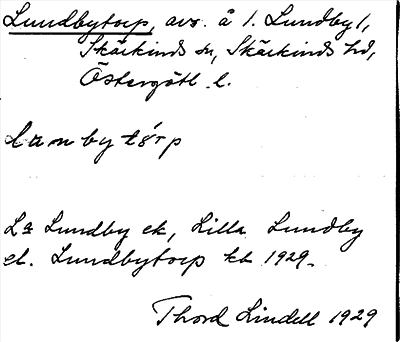 Lundbytorp, avs. å 1. Lundby 1,
Skärkinds sn, Skärkinds hd,
Östergötl. l.
lumbytårp
La Lundby ek, Lilla Lundby
el. Lundbytorp kb 1929.
Thord Lindell 1929